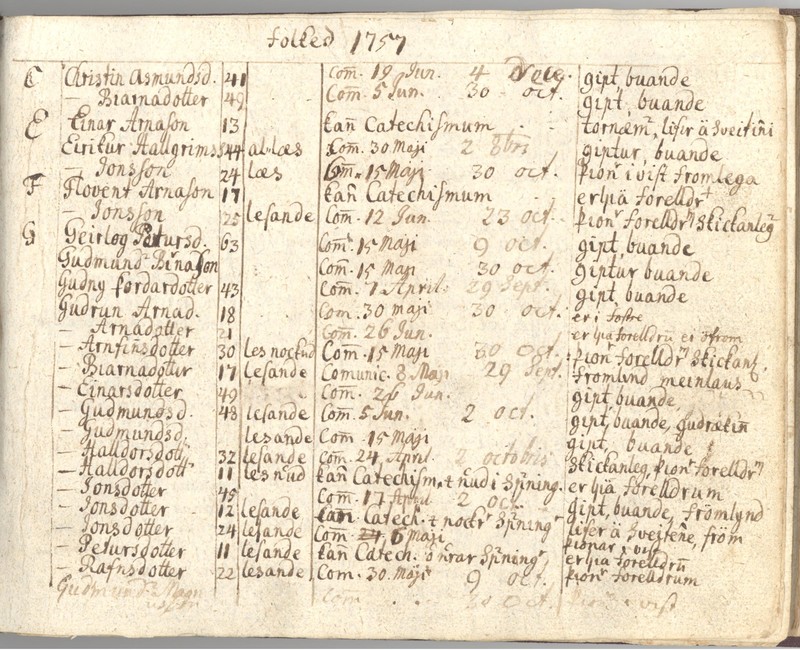 folked 1757
C Christin Asmundsd. 41 Com. 19 Jun. 4 gipt, buande
– Biarnadotter 49 Com. 5 Jun. 30 oct. gipt, buande
E Einar Arnason 13 kan Catechismum lifer ä Sveitiñi
Eirikur Hallgrims 44 al-læs Com. 30 Maji 2 8bris giptur, buande
– Jonsson 24 læs Com. 15 Maji 30 oct. þionr i vist fromlega
F Flovent Arnason 17 kan Catechismum er hiä forelldr
– Jonsson 25 lesande Com. 12 Jun. 23 oct. þionr forelldrn Skickanlega
G Geirlog Petursd. 63 Com. 15 Maji 9 oct. gipt, buande
Gudmundr Com. 15 Maji 30 oct. giptur buande
Gudny þordardotter 43 Com. 7 April. 29 Sept. gipt, buande
Gudrun Arnad. 18 Com. 30 maji 30 oct. er i fostre
– Arnadotter 21 Com. 26 Jun. er hia forelldrū ei ofrom
– Arnfinsdotter 30 les nockud Com. 15 Maji 30 oct. þionr forelldrn Skickanl.
– Biarnadotter 17 lesande Comunic. 8 Maji 29 Sept. fromlynd meinlaus
– Einarsdotter 49 Com. 26 Jun. gipt, buande,
– Gudmundsd. 48 lesande Com. 5 Jun. 2 oct. gipt, buande, gudrækin
– Gudmundsd. lesande Com. 15 Maji gipt, buande
– Halldorsdott 32 lesande Com. 24 April 2 octobris Skickanleg, þionr forelldrn
– Halldorsdott 11 les nud kan Catechism. + nud i Spning. er hiä forelldrum
– Jonsdotter 45 Com. 17 April 2 oct. gipt, buande, frömlynd
– Jonsdotter 12 lesande kan Catech. + nockr Spningr lifer ä Sveitene, fröm
– Jonsdotter 24 lesande Com. 24, 6 maji þionar i vist
– Petursdotter 11 lesande kan Catech. Spningr, er hia forelldrū
– Rafnsdotter 22 lesande Com. 30 Maji 9 oct. þionr forelldrum
Gudmundr Com 30 oct. þionr i vist